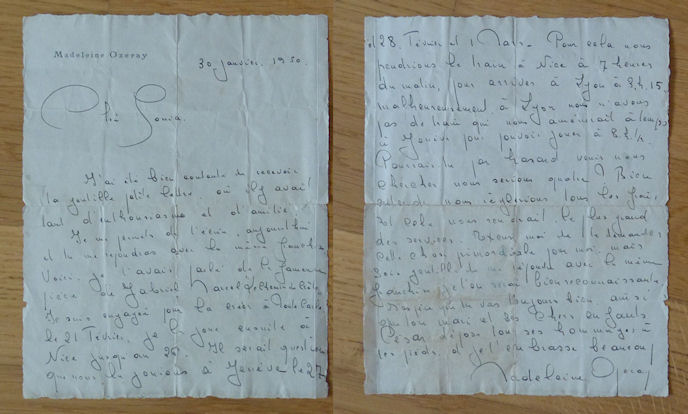 Madeleine Ozeray
30 janvier 1950.
Chère Sonia.
J'ai été bien contente de recevoir
ta gentille petite lettre où il y avait
tant d'enthousiasme et d'amitié.
Je me permets de t'écrire aujourd'hui
et tu me répondras avec la même franchise.
Voici. Je t'avais parlé de la fameuse
pièce de Gabriel Marcel "le Chemin de Crête"
Je suis engagée pour la créer à Monte Carlo
le 21 Février, je la joue ensuite à
Nice jusqu'au 26. Il serait question
que nous la jouions à Genève le 27
et 28 Février et 1 Mars. Pour cela nous
prendrions le train à Nice à 7 heures
du matin, pour arriver à Lyon à 3.h.15
malheureusement à Lyon nous n'avons
pas de train qui nous amènerait à temps
à Genève pour pouvoir jouer à 8.h.½
Pourrais tu par hasard venir nous
chercher nous serions quatre ? Bien
entendu nous réglerions tous les frais,
Et cela nous rendrait le plus grand
des services. Excuse moi de te demander
cette chose primordiale pour moi, mais
sois gentille de me répondre avec la même
franchise je t'en serai bien reconnaissante
J'espère que tu vas toujours bien ainsi
que ton mari et tes chers enfants
César dépose tous ses hommages à
tes pieds, et je t'embrasse beaucoup
Madeleine Ozeray